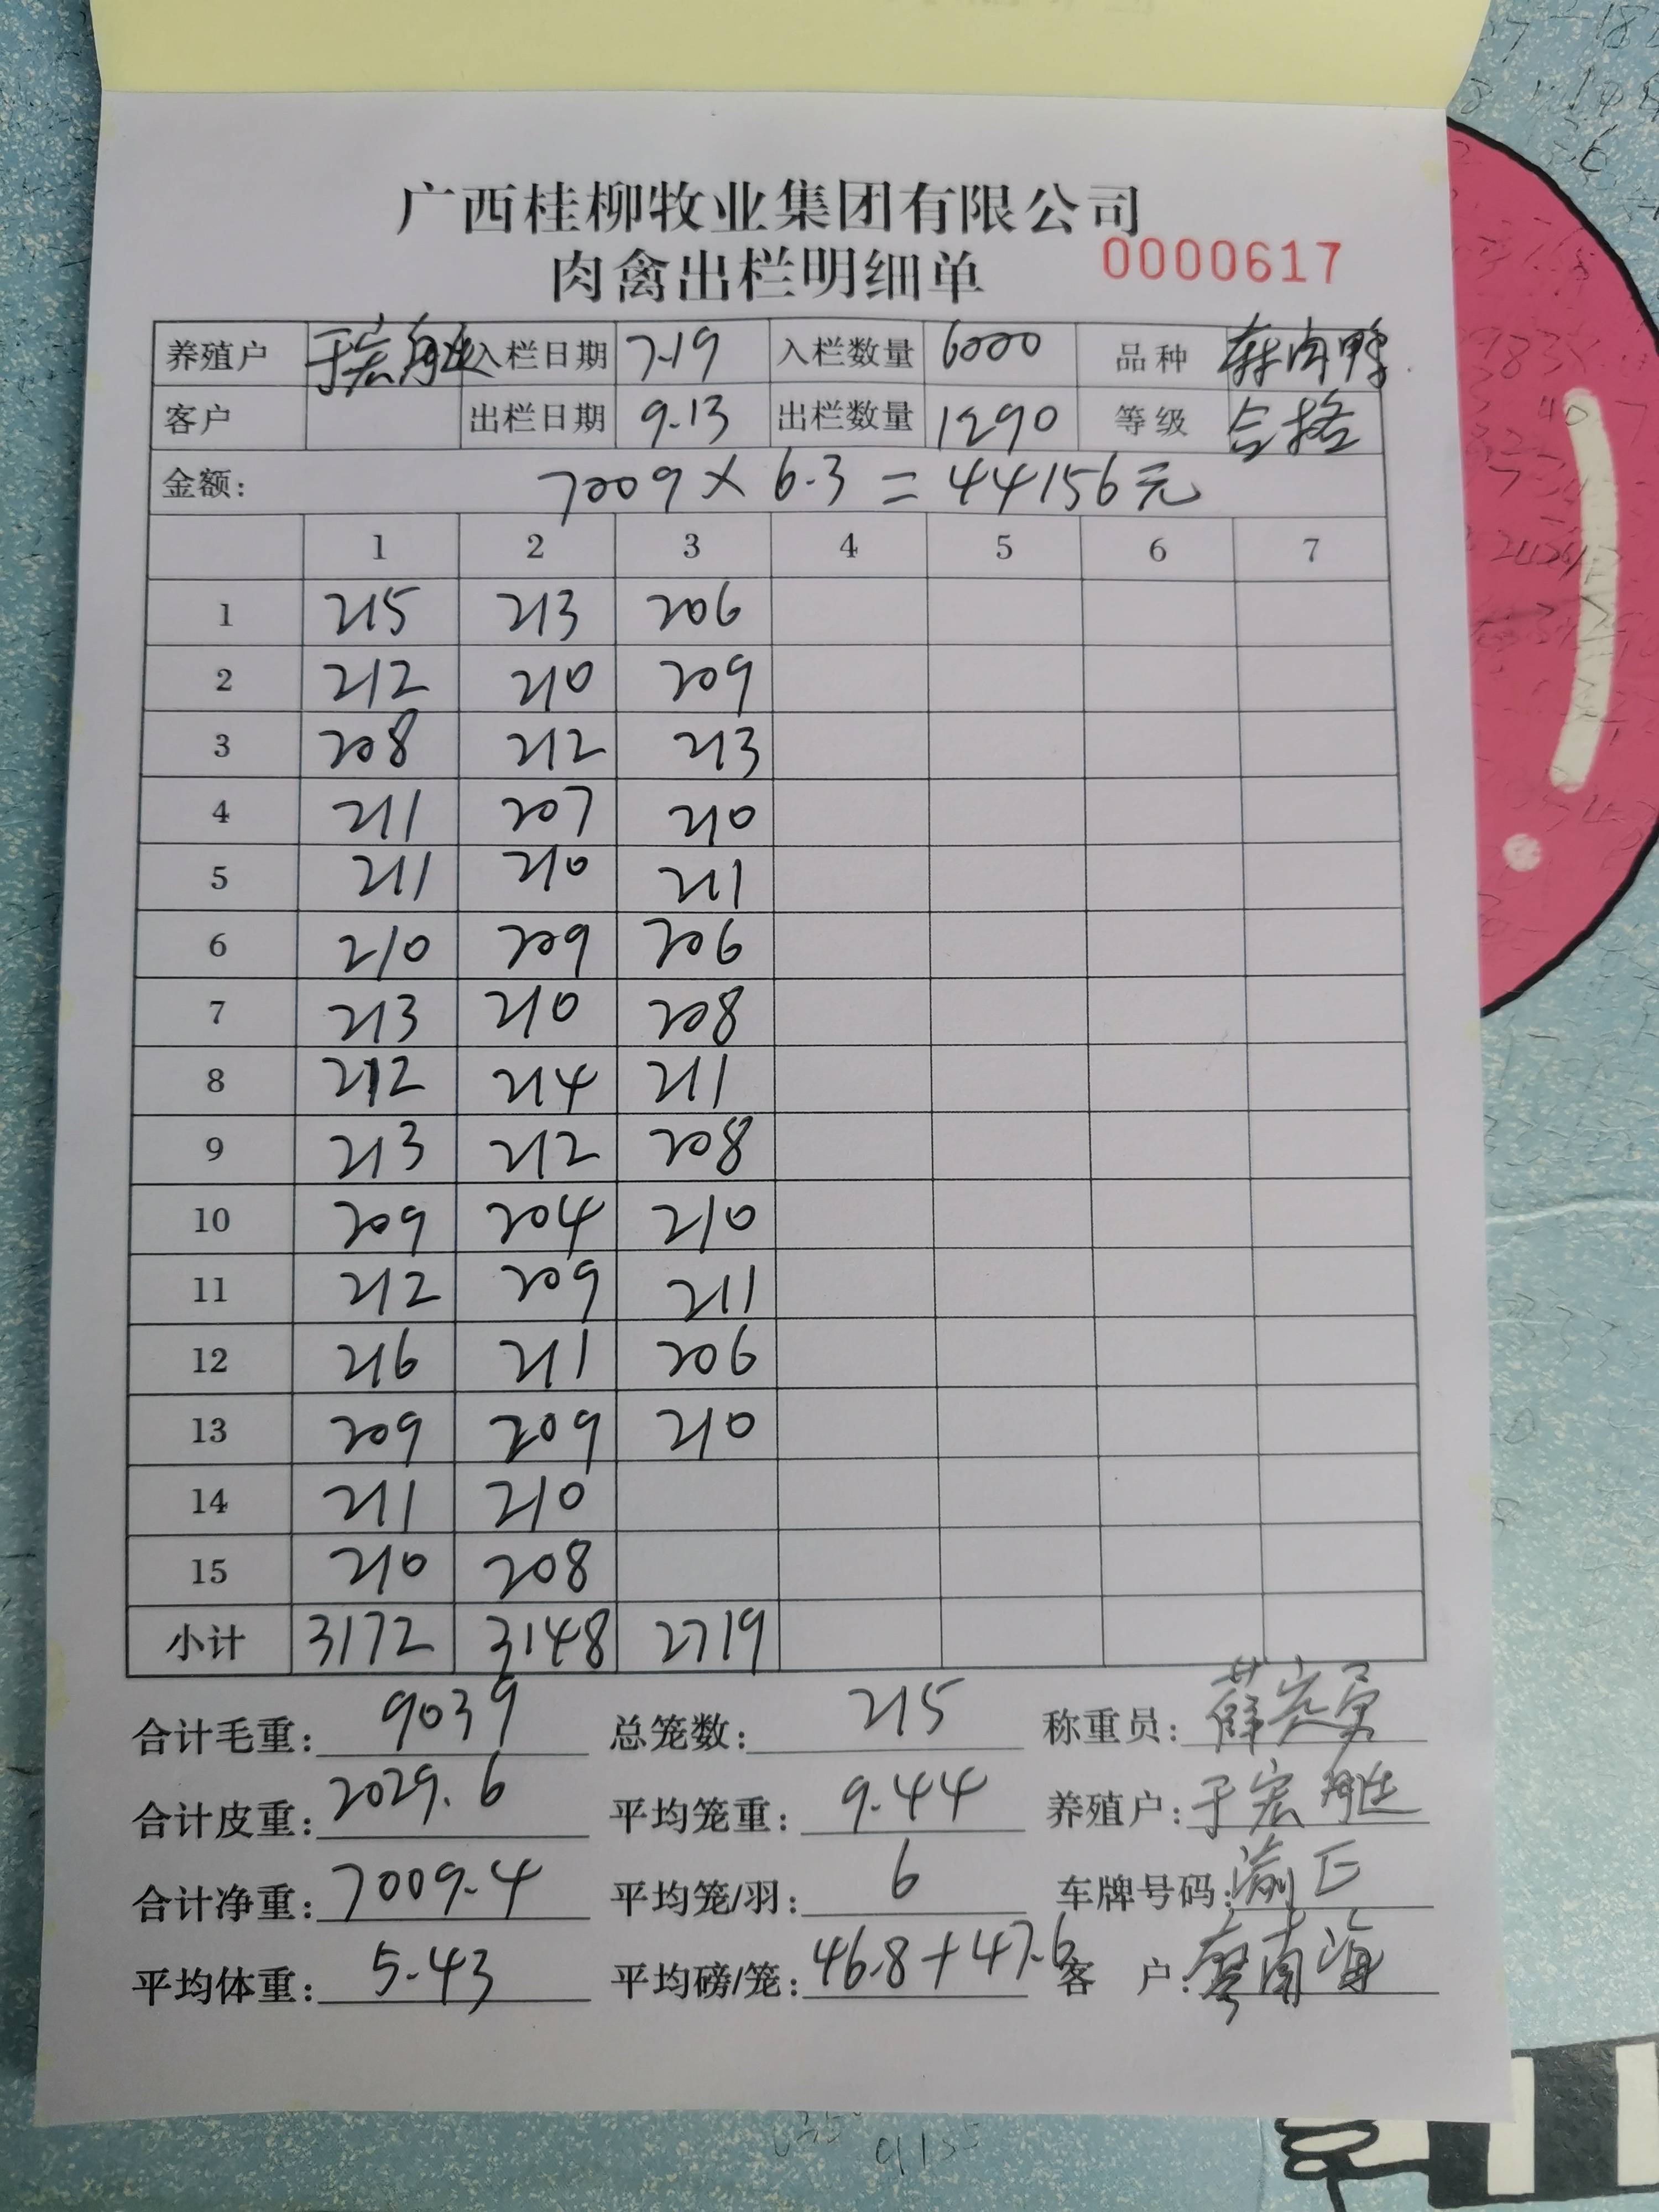 广西桂柳牧业集团有限公司
肉禽出栏明细单 0000617
养殖户 于宏 入栏日期 7.19 入栏数量 6000 品种 麻肉鸭
客户 出栏日期 9.13 出栏数量 1290 等级 合格
金额: 7009 × 6.3 = 44156元
1 2 3 4 5 6 7
1 215 213 206
2 212 210 209
3 208 212 213
4 211 207 210
5 211 210 211
6 210 209 206
7 213 210 208
8 212 214 211
9 213 212 208
10 209 204 210
11 212 209 211
12 216 211 206
13 209 209 210
14 211 210
15 210 208
小计 3172 3148 2719
合计毛重: 9039 总笼数: 215 称重员: 薛
合计皮重: 2029.6 平均笼重: 9.44 养殖户: 于宏
合计净重: 7009.4 平均笼/羽: 6 车牌号码: 渝
平均体重: 5.43 平均磅/笼: 46.8+47.6 客户: 廖南海